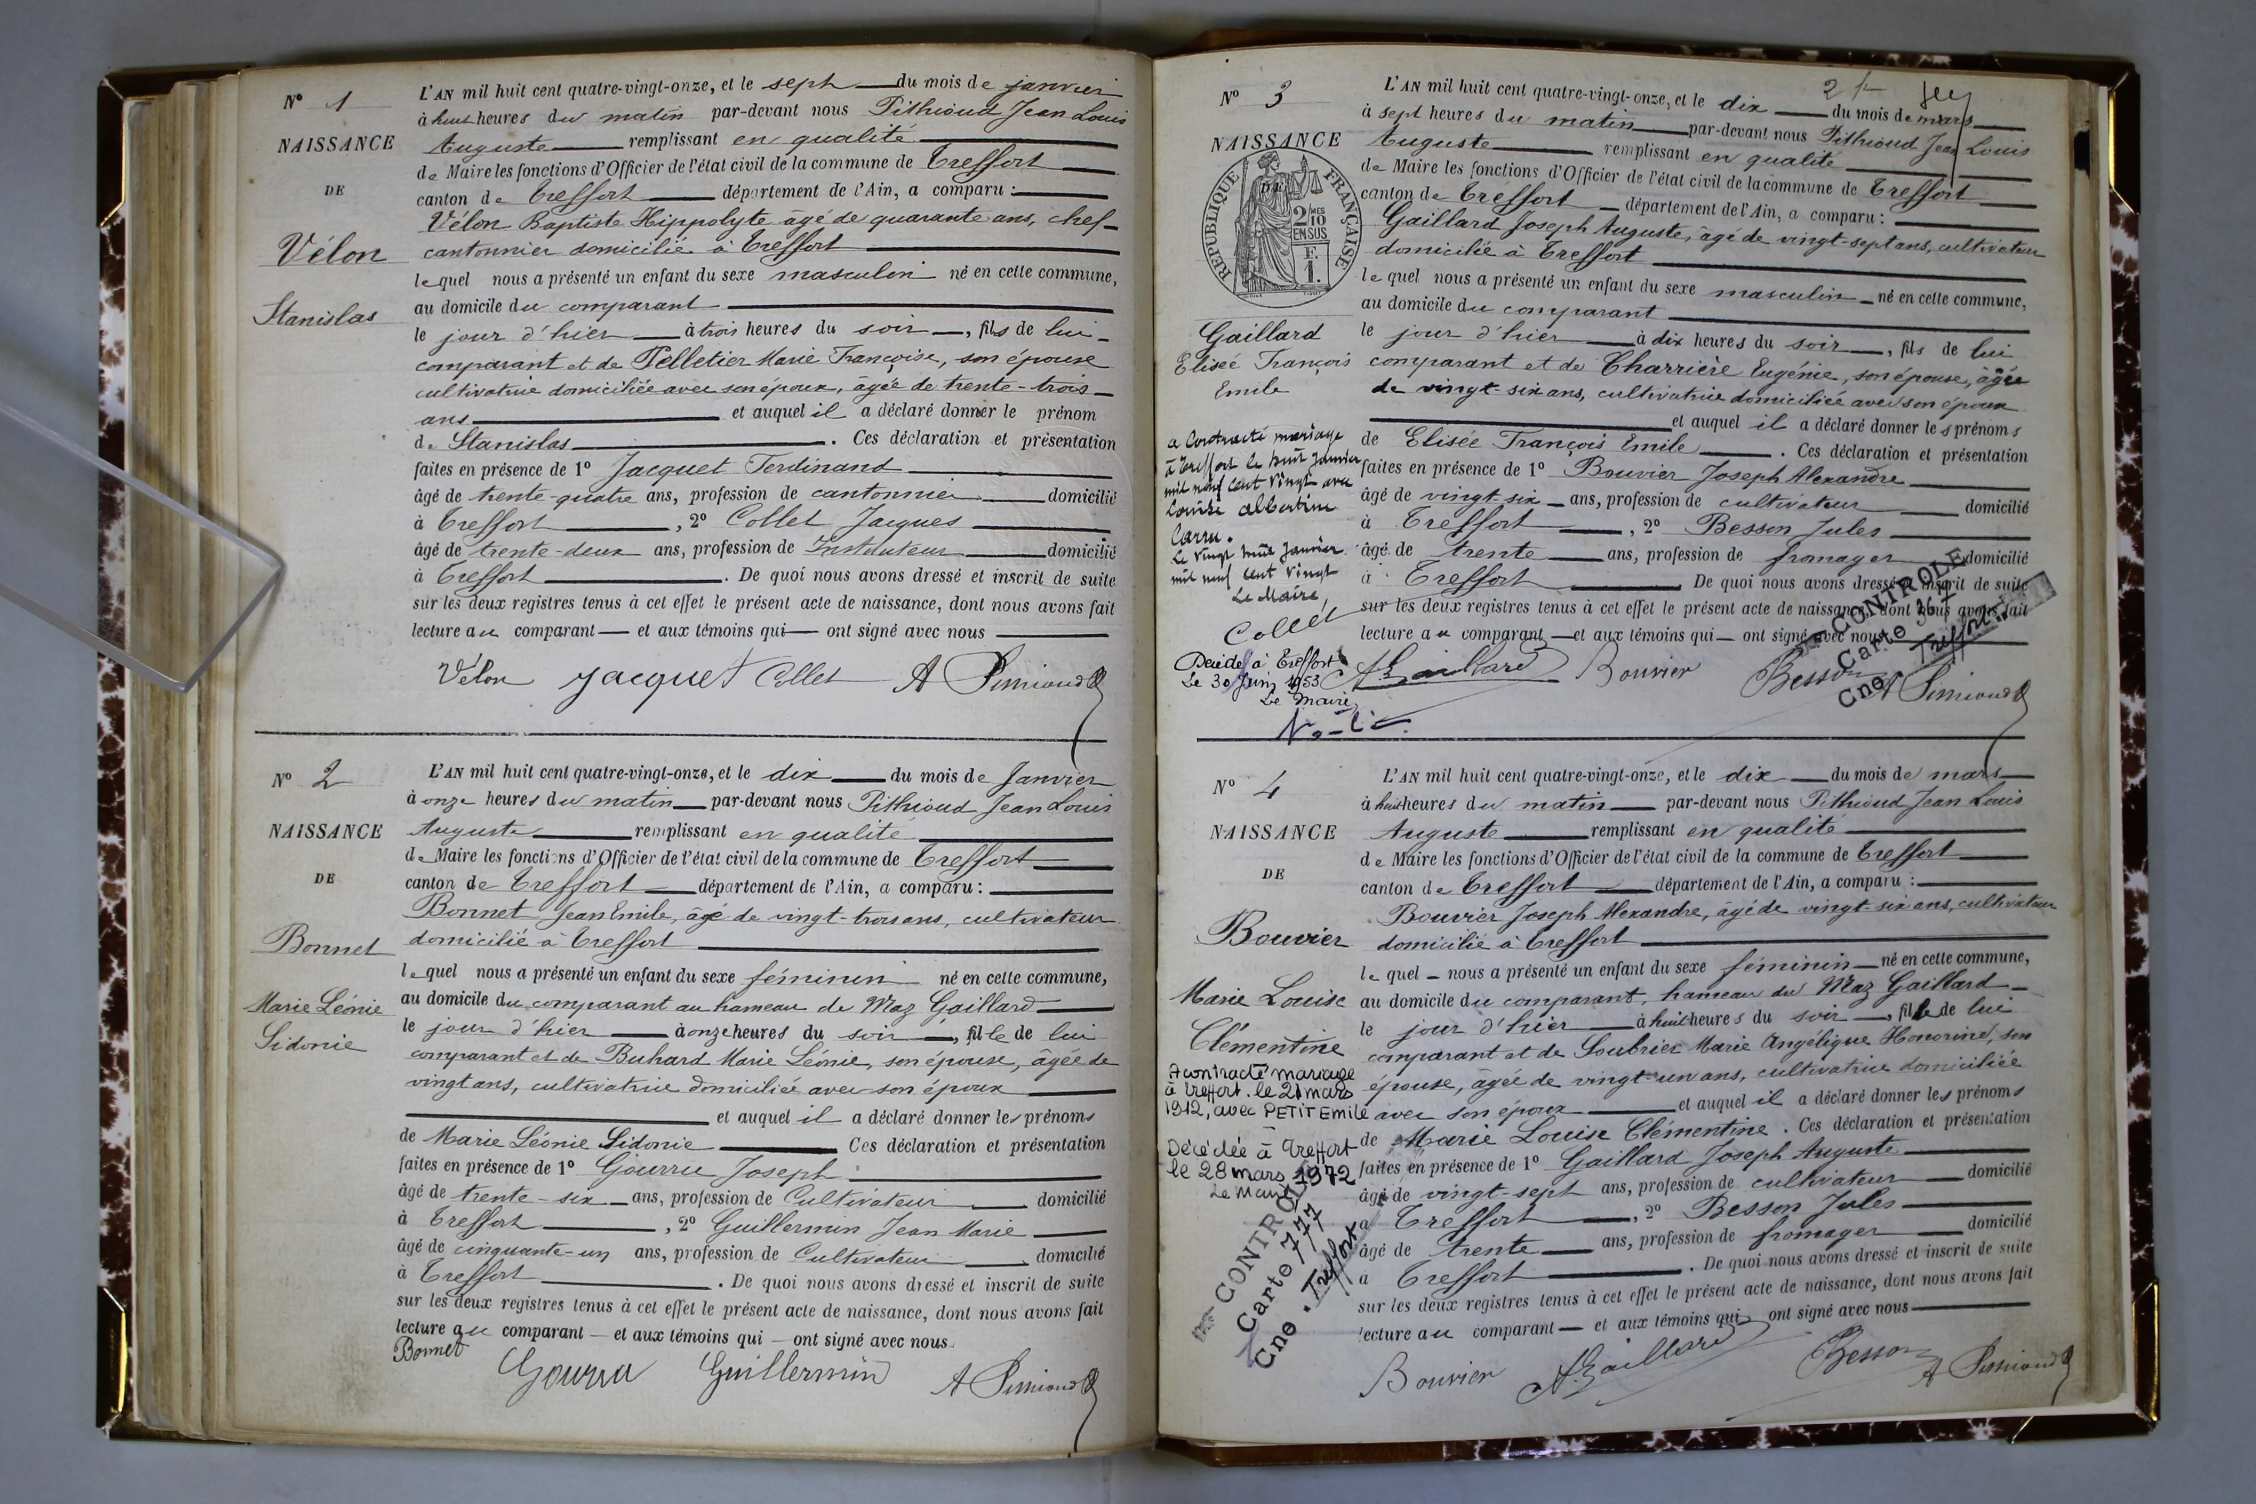 N° 1
NAISSANCE
DE
Vélon
Stanislas
L'AN mil huit cent quatre-vingt-onze, et le sept du mois de janvier
à huit heures du matin par-devant nous Pithioud Jean Louis
Auguste remplissant en qualité
de Maire les fonctions d'Officier de l'état civil de la commune de Treffort
canton de Treffort département de l'Ain, a comparu :
Vélon Baptiste Hippolyte âgé de quarante ans, chef-
cantonnier domicilié à Treffort
lequel nous a présenté un enfant du sexe masculin né en cette commune,
au domicile du comparant
le jour d'hier à trois heures du soir, fils de lui
comparant et de Pelletier Marie Françoise, son épouse
cultivatrice domiciliée avec son époux, âgée de trente-trois
ans et auquel il a déclaré donner le prénom
de Stanislas. Ces déclaration et présentation
faites en présence de 1° Jacquet Ferdinand
âgé de trente-quatre ans, profession de cantonnier domicilié
à Treffort, 2° Collet Jacques
âgé de trente-deux ans, profession de Instituteur domicilié
à Treffort. De quoi nous avons dressé et inscrit de suite
sur les deux registres tenus à cet effet le présent acte de naissance, dont nous avons fait
lecture au comparant et aux témoins qui ont signé avec nous
Vélon Jacquet Collet A Pithioud
N° 2
NAISSANCE
DE
Bonnet
Marie Léonie
Sidonie
L'AN mil huit cent quatre-vingt-onze, et le dix du mois de Janvier
à onze heures du matin par-devant nous Pithioud Jean Louis
Auguste remplissant en qualité
de Maire les fonctions d'Officier de l'état civil de la commune de Treffort
canton de Treffort département de l'Ain, a comparu :
Bonnet Jean Emile, âgé de vingt-trois ans, cultivateur
domicilié à Treffort
lequel nous a présenté un enfant du sexe féminin né en cette commune,
au domicile du comparant au hameau du Maz Gaillard
le jour d'hier à onze heures du soir, fille de lui
comparant et de Buhard Marie Léonie, son épouse, âgée de
vingt ans, cultivatrice domiciliée avec son époux
et auquel il a déclaré donner les prénoms
de Marie Léonie Sidonie Ces déclaration et présentation
faites en présence de 1° Gourru Joseph
âgé de trente-six ans, profession de Cultivateur domicilié
à Treffort, 2° Guillermin Jean Marie
âgé de cinquante-un ans, profession de Cultivateur domicilié
à Treffort. De quoi nous avons dressé et inscrit de suite
sur les deux registres tenus à cet effet le présent acte de naissance, dont nous avons fait
lecture au comparant et aux témoins qui ont signé avec nous.
Bonnet Gourru Guillermin A Pithioud
N° 3
NAISSANCE
DE
RÉPUBLIQUE FRANÇAISE
2/10
EN SUS
F.
1.
Gaillard
Elisée François
Emile
a Contracté mariage
à Treffort le huit Janvier
mil neuf cent vingt avec
Louise Albertine
Carru.
Le vingt huit Janvier
mil neuf cent vingt
Le Maire,
Collet
Décédé à Treffort
Le 30 Juin 1953
Le Maire
L'AN mil huit cent quatre-vingt-onze, et le dix du mois de mars
à sept heures du matin par-devant nous Pithioud Jean Louis
Auguste remplissant en qualité
de Maire les fonctions d'Officier de l'état civil de la commune de Treffort
canton de Treffort département de l'Ain, a comparu :
Gaillard Joseph Auguste, âgé de vingt-sept ans, cultivateur
domicilié à Treffort
lequel nous a présenté un enfant du sexe masculin né en cette commune,
au domicile du comparant
le jour d'hier à dix heures du soir, fils de lui
comparant et de Charrière Eugénie, son épouse, âgée
de vingt-six ans, cultivatrice domiciliée avec son époux
et auquel il a déclaré donner les prénoms
de Elisée François Emile. Ces déclaration et présentation
faites en présence de 1° Bouvier Joseph Alexandre
âgé de vingt six ans, profession de cultivateur domicilié
à Treffort, 2° Besson Jules
âgé de trente ans, profession de fromager domicilié
à Treffort De quoi nous avons dressé et inscrit de suite
sur les deux registres tenus à cet effet le présent acte de naissance, dont nous avons fait
lecture au comparant et aux témoins qui ont signé avec nous
CONTROLE
Carte 367
Cne. Treffort
A. Gaillard Bouvier Besson A Pithioud
N° 4
NAISSANCE
DE
Bouvier
Marie Louise
Clémentine
A contracté mariage
à Treffort le 21 mars
1912, avec PETIT Emile
Décédée à Treffort
le 28 mars 1972
Le Maire
CONTROLE
Carte 777
Cne. Treffort
L'AN mil huit cent quatre-vingt-onze, et le dix du mois de mars
à huit heures du matin par-devant nous Pithioud Jean Louis
Auguste remplissant en qualité
de Maire les fonctions d'Officier de l'état civil de la commune de Treffort
canton de Treffort département de l'Ain, a comparu :
Bouvier Joseph Alexandre, âgé de vingt-six ans, cultivateur
domicilié à Treffort
lequel nous a présenté un enfant du sexe féminin né en cette commune,
au domicile du comparant, hameau du Maz Gaillard
le jour d'hier à huit heures du soir, fille de lui
comparant et de Soubrier Marie Angélique Honorine, son
épouse, âgée de vingt-un ans, cultivatrice domiciliée
avec son époux et auquel il a déclaré donner les prénoms
de Marie Louise Clémentine. Ces déclaration et présentation
faites en présence de 1° Gaillard Joseph Auguste
âgé de vingt-sept ans, profession de cultivateur domicilié
à Treffort, 2° Besson Jules
âgé de trente ans, profession de fromager domicilié
à Treffort. De quoi nous avons dressé et inscrit de suite
sur les deux registres tenus à cet effet le présent acte de naissance, dont nous avons fait
lecture au comparant et aux témoins qui ont signé avec nous
Bouvier A. Gaillard Besson A Pithioud